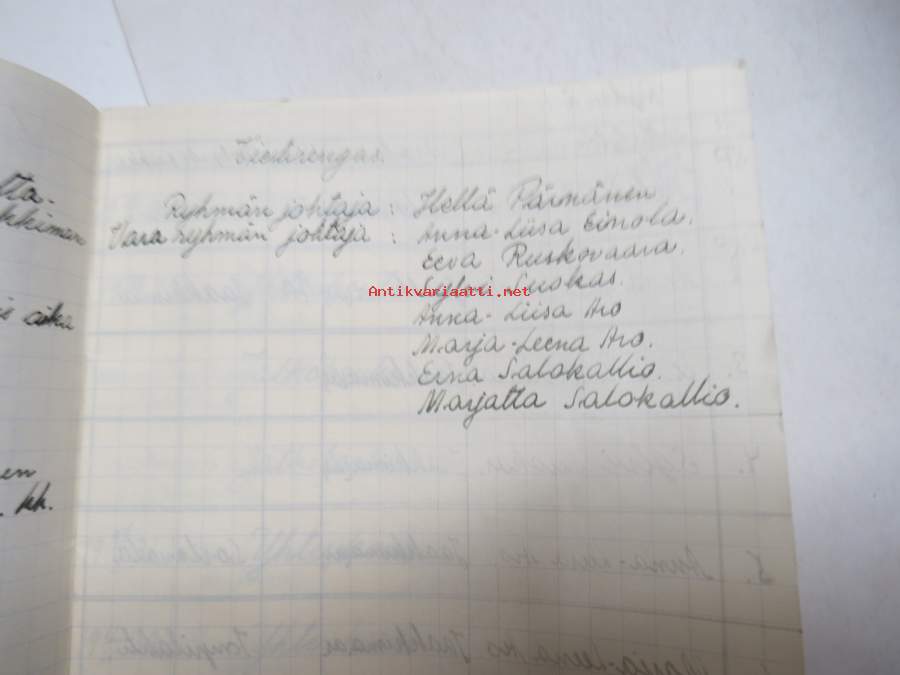 tta-
kkiman
s aika
en
kk.
Ryhmän johtaja : Hellä Pärmänen
Vara ryhmän johtaja : Anna-Liisa Einola.
Eeva Ruskovaara.
Sylvi Luokas.
Antikvariaatti.net
Anna-Liisa Aro
Marja-Leena Aro.
Erna Salokallio.
Marjatta Salokallio.